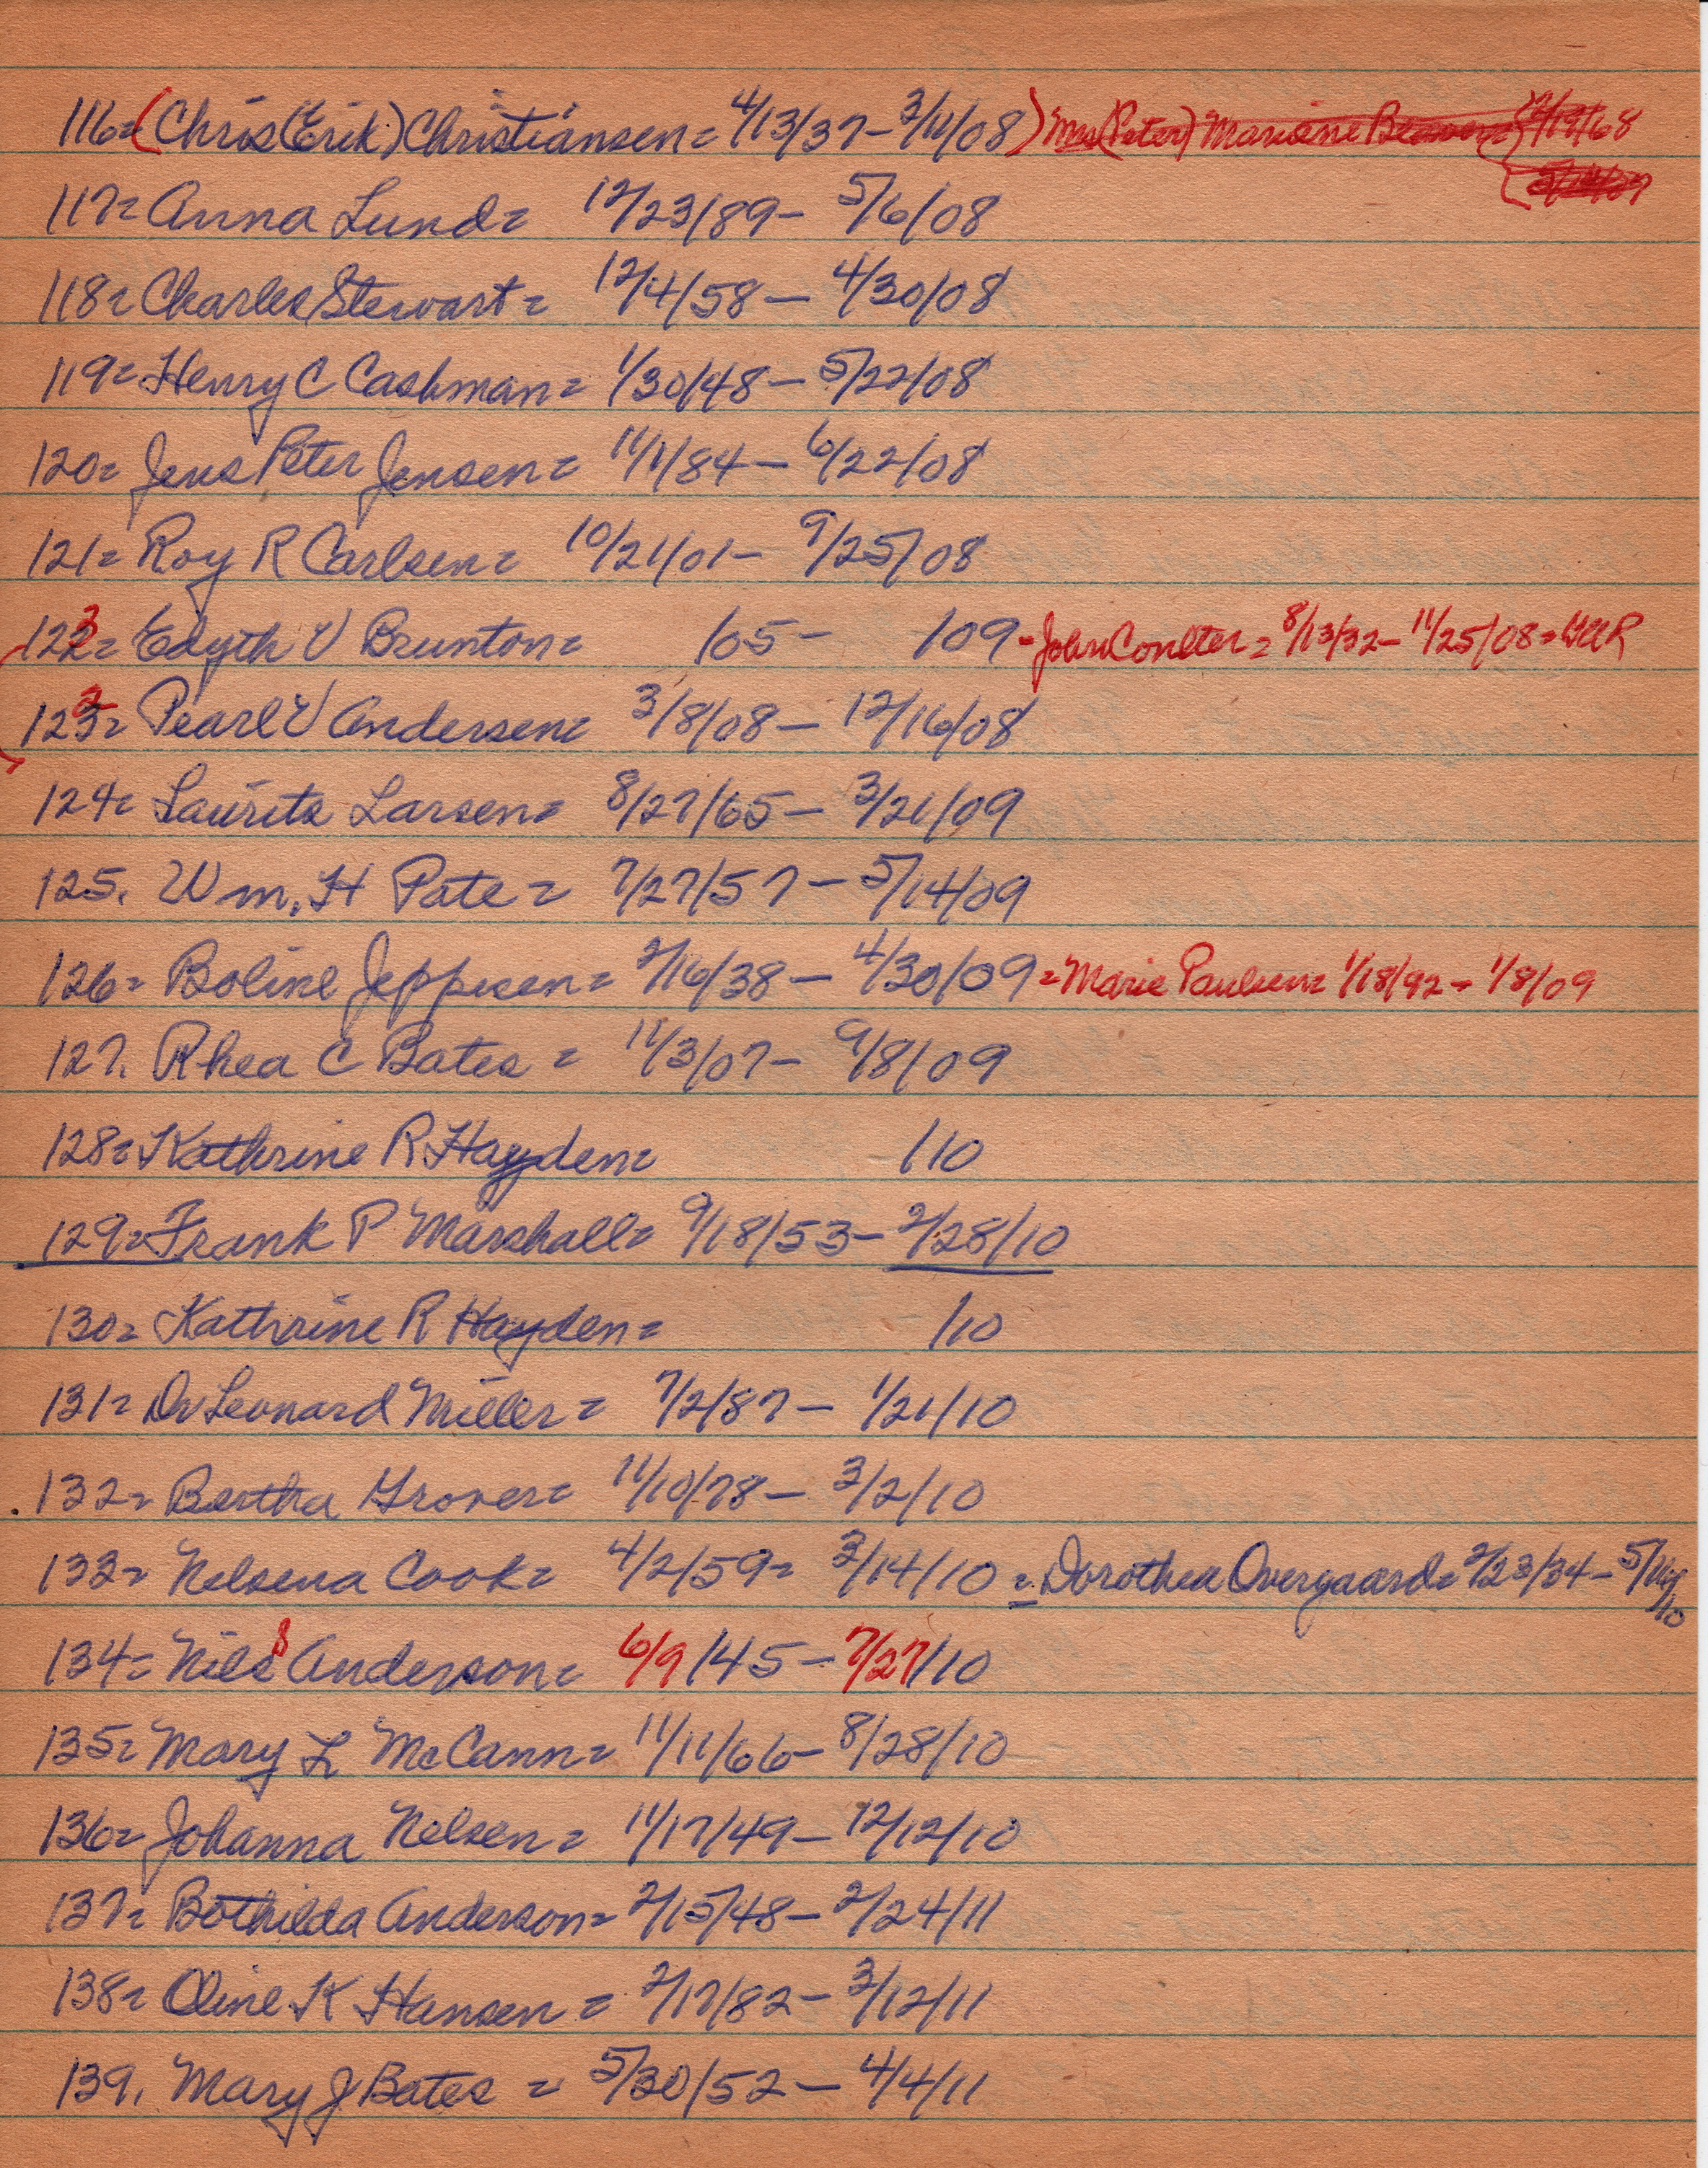 116= (Chris(Erik) Christiansen= 4/13/37- 3/11/08) Mrs (Peter) Mariane 2/19/68
117= Anna Lund= 12/23/89- 5/6/08
118= Charles Stewart= 12/4/58- 4/30/08
119= Henry C Cashman= 1/30/48- 5/22/08
120= Jens Peter Jensen= 11/1/84- 6/22/08
121= Roy R Carlsen= 10/21/01- 9/25/08
123= Edyth V Brunton= /05- /09 - John Coulter= 8/13/32- 11/25/08= GAR
122= Pearl V Andersen= 3/8/08- 12/16/08
124= Laurits Larsen= 8/27/65- 3/21/09
125. Wm. H Pate= 7/27/57- 5/14/09
126= Boline Jeppesen= 2/16/38- 4/30/09 = Marie Paulsen= 1/18/92- 1/8/09
127. Rhea C Bates= 11/3/07- 9/8/09
128= Kathrine R Hayden= /10
129= Frank P Marshall= 9/18/53- 2/28/10
130= Kathrine R Hayden= /10
131= Dr Leonard Miller= 7/2/87- 1/21/10
132= Bertha Grover= 11/10/78- 3/2/10
133= Nelsena Cook= 4/2/59= 3/14/10 = Dorothea Overgaard= 2/23/34- 5/ /10
134= Nils Anderson= 6/9/45- 7/27/10
135= Mary L McCann= 11/11/66- 8/28/10
136= Johanna Nelsen= 11/17/49- 12/12/10
137= Bothilda Anderson= 2/15/48- 2/24/11
138= Oline K Hansen= 2/17/82- 3/12/11
139. Mary J Bates= 5/30/52- 4/4/11